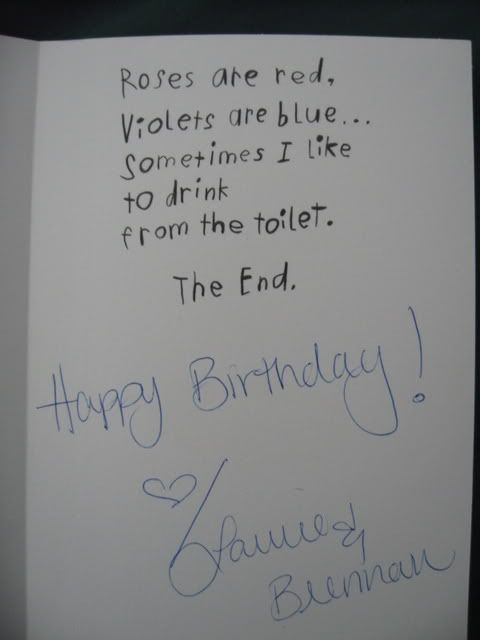 Roses are red,
Violets are blue...
Sometimes I like
to drink
from the toilet.
The End.
Happy Birthday!
&
Brennan